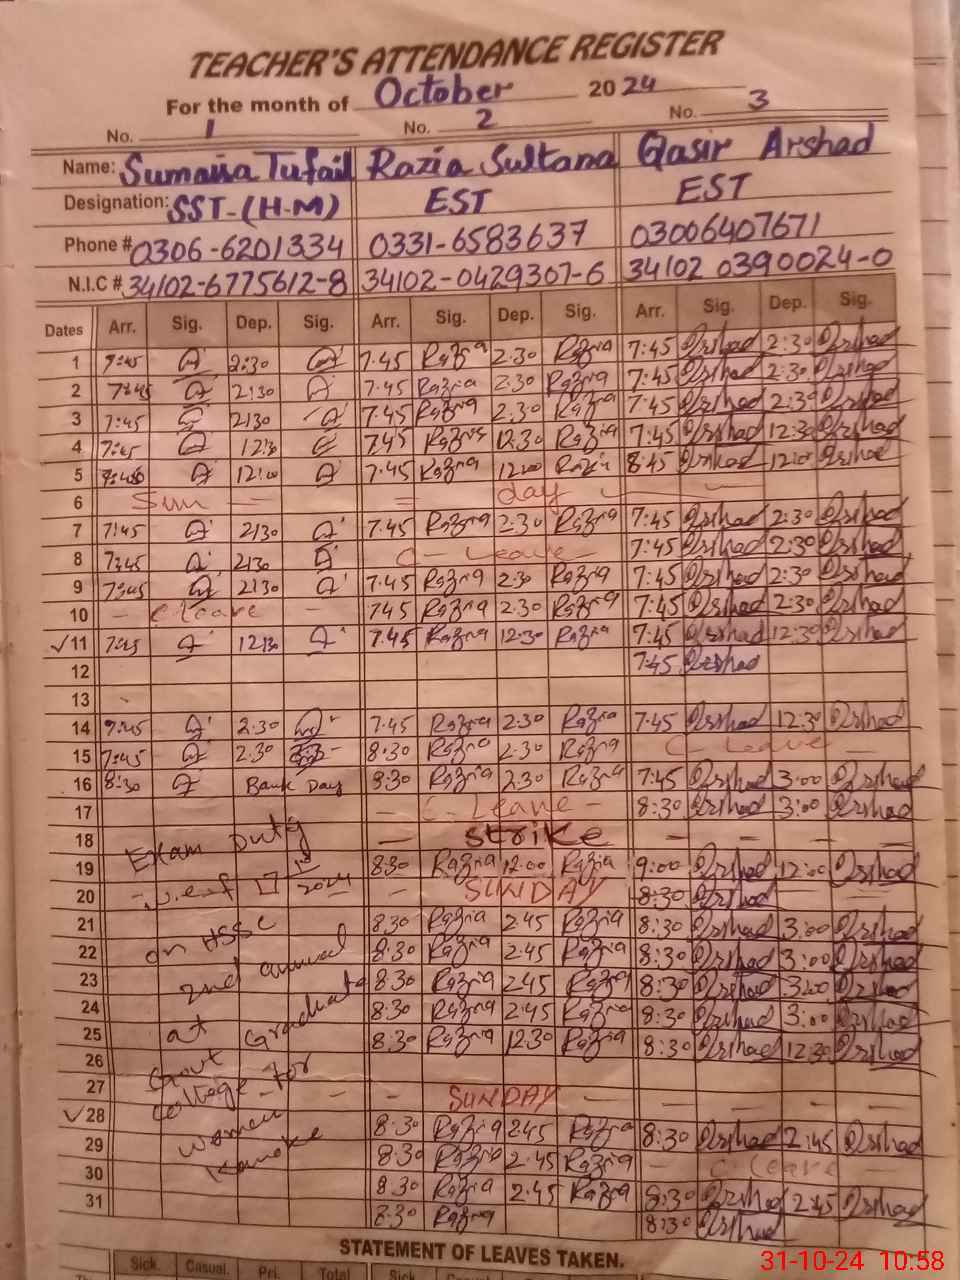 TEACHER'S ATTENDANCE REGISTER
For the month of October 2024
No. 1 No. 2 No. 3
Name: Sumaira Tufail Razia Sultana Qasir Arshad
Designation: SST-(H-M) EST EST
Phone # 0306-6201334 0331-6583637 03006407671
N.I.C # 34102-6775612-8 34102-0429307-6 34102 0390024-0
Dates Arr. Sig. Dep. Sig. Arr. Sig. Dep. Sig. Arr. Sig. Dep. Sig.
1 7:45 2:30 7:45 Razia 2:30 Razia 7:45 Qrshad 2:30 Qrshad
2 7:45 2:30 7:45 Razia 2:30 Razia 7:45 Qrshad 2:30 Qrshad
3 7:45 2:30 7:45 Razia 2:30 Razia 7:45 Qrshad 2:30 Qrshad
4 7:45 12:30 7:45 Razia 12:30 Razia 7:45 Qrshad 12:30 Qrshad
5 12:00 7:45 Razia 12:00 Razia 8:45 Qrshad 12:00 Qrshad
6 Sun = = day
7 7:45 2:30 7:45 Razia 2:30 Razia 7:45 Qrshad 2:30 Qrshad
8 7:45 2:30 C - Leave - 7:45 Qrshad 2:30 Qrshad
9 7:45 2:30 7:45 Razia 2:30 Razia 7:45 Qrshad 2:30 Qrshad
10 - C leave - 7:45 Razia 2:30 Razia 7:45 Qrshad 2:30 Qrshad
✓11 7:45 12:30 7:45 Razia 12:30 Razia 7:45 Qrshad 12:30 Qrshad
12 7:45 Qrshad
13
14 7:45 2:30 7:45 Razia 2:30 Razia 7:45 Qrshad 12:30 Qrshad
15 7:45 2:30 8:30 Razia 2:30 Razia C - Leave -
16 8:30 Bank Day 8:30 Razia 2:30 Razia 7:45 Qrshad 3:00 Qrshad
17 - C - Leave - 8:30 Qrshad 3:00 Qrshad
18 Exam Duty - Strike - - - -
19 8:30 Razia 12:00 Razia 9:00 Qrshad 12:00 Qrshad
20 w.e.f 17 2024 - SUNDAY 8:30 Qrshad
21 on HSSC 8:30 Razia 2:45 Razia 8:30 Qrshad 3:00 Qrshad
22 2nd annual 8:30 Razia 2:45 Razia 8:30 Qrshad 3:00 Qrshad
23 8:30 Razia 2:45 Razia 8:30 Qrshad 3:00 Qrshad
24 at Graduate 8:30 Razia 2:45 Razia 8:30 Qrshad 3:00 Qrshad
25 8:30 Razia 12:30 Razia 8:30 Qrshad 12:30 Qrshad
26 Govt
27 College for - - SUNDAY - - - - -
✓28 women 8:30 Razia 2:45 Razia 8:30 Qrshad 2:45 Qrshad
29 Kamoke 8:30 Razia 2:45 Razia - C. leave -
30 8:30 Razia 2:45 Razia 8:30 Qrshad 2:45 Qrshad
31 8:30 Razia 8:30 Qrshad
STATEMENT OF LEAVES TAKEN.
Sick. Casual. Pri. Total Sick.
31-10-24 10:58